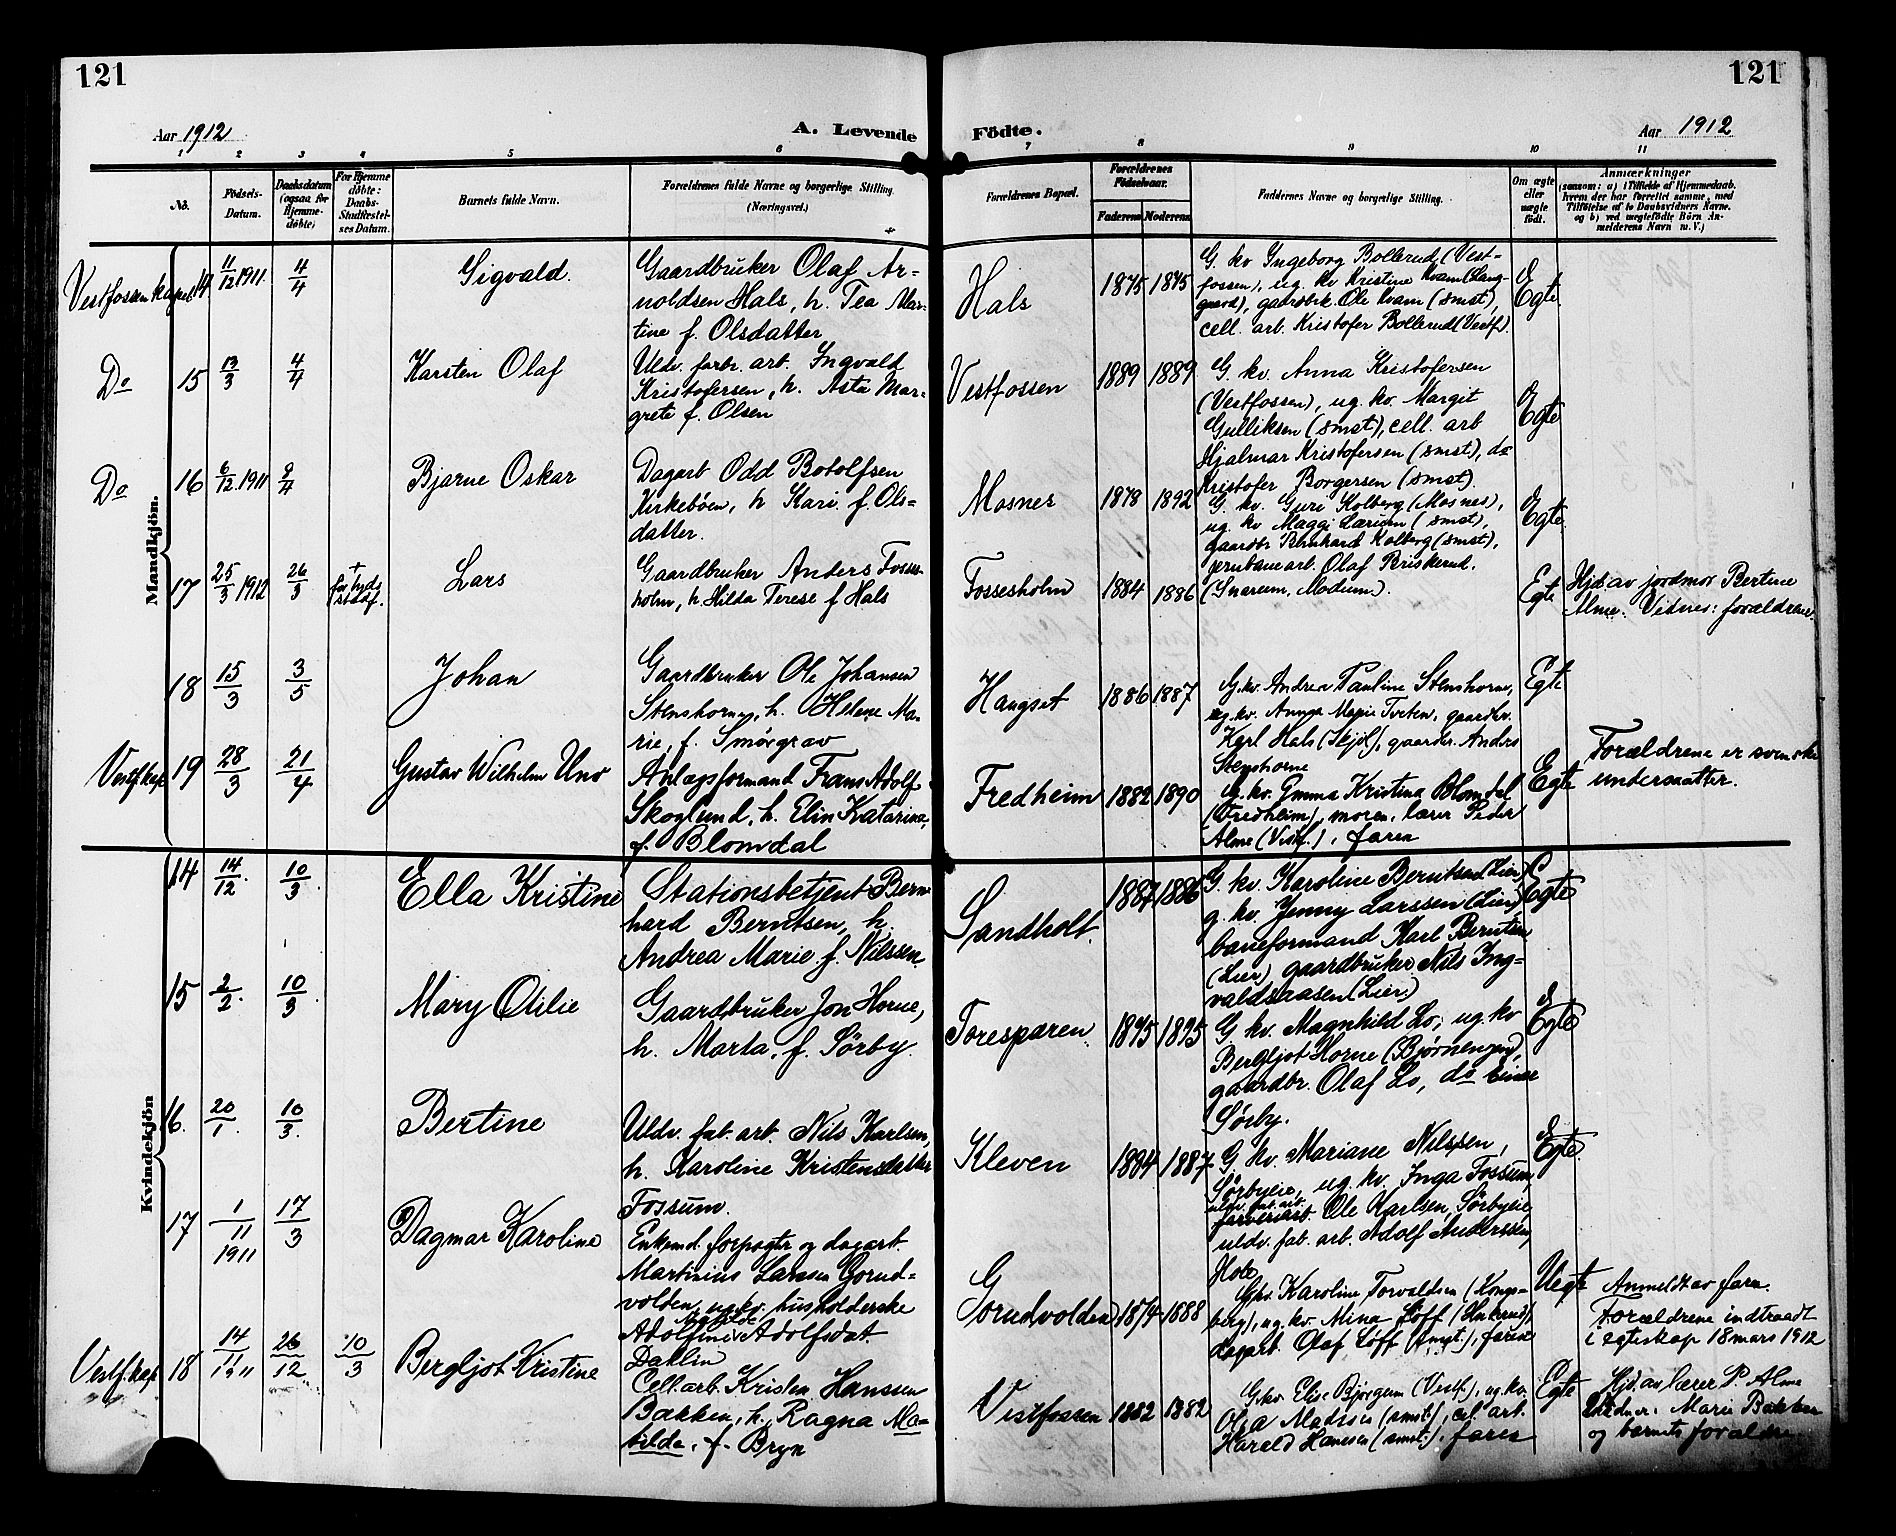 121
121
Aar 1912
A. Levende Födte.
Aar 1912
1 2 3 4 5 6 7 8 9 10 11
No.
Födsels-Datum.
Daabsdatum (ogsaa for Hjemmedøbte)
For Hjemmedøbte: Daabs-Stadfæstelses Datum.
Barnets fulde Navn.
Forældrenes fulde Navne og borgerlige Stilling. (Næringsvei.)
Forældrenes Bopæl.
Forældrenes Fødselsaar.
Faderens Moderens
Faddernes Navne og borgerlige Stilling.
Om ægte eller uægte født.
Anmærkninger
(saasom: a) i Tilfælde af Hjemmedaab, hvem der har forrettet samme, med Tilföielse af to Daabsvidners Navne, og b) ved uægtefödte Börn Anmelderens Navn m. V.)
Mandkjön.
Vestfossen kapel 14 11/12 1911 4/4 Sigvald.
Gaardbruker Olaf Ar-
noldsen Hals, h. Tea Mar-
tine f. Olsdatter
Hals 1875 1875
G. kv Ingeborg Bollerud (Vest-
fossen), ug. kv Kristine Kvam (Lang-
gaard), gaardbrk. Ole Kvam (smst),
cell. arb. Kristofer Bollerud (Vestf.).
Egte
Do 15 13/3 4/4 Karsten Olaf
Uldv. fabr. arb. Ingvald
Kristofersen, h. Asta Mar-
grete f. Olsen
Vestfossen 1889 1889
G. kv. Anna Kristofersen
(Vestfossen), ug. kv. Margit
Gulliksen (smst), cell. arb
Hjalmar Kristofersen (smst), do
Kristofer Borgersen (smst).
Egte
Do 16 6/12 1911 9/4 Bjarne Oskar
Dagarb Odd Botolfsen
Kirkebøen, h Kari f. Ols-
datter.
Mosnes 1878 1892
G. kv. Guri Kolberg (Mosnes),
ug. kv Maggi Lærum (smst),
gaardbr Bernhard Kolberg (smst),
jernbanearb. Olaf Briskerud.
(Snarum, Modum).
Egte
17 25/3 1912 26/3 + før
stadf. Lars
Gaardbruker Anders Fosses-
holm, h Hilda Terese f Hals
Fossesholm 1884 1886
Egte
Hjd. av jordmor Bertine
Alme. Vidnes: forældrene
18 15/3 3/5 Johan
Gaardbruker Ole Johansen
Stenshorne, h. Helene Ma-
rie, f. Smörgrav
Haugset 1886 1887
G. kv. Andrea Pauline Stenshorne,
ug. kv. Anna Marie Tveten, gaardbr.
Karl Hals (Skjöl), gaardbr. Anders
Stenshorne
Egte
Vestf. kap 19 28/3 21/4 Gustav Wilhelm Uno
Anlægsformand Frans Adolf
Skoglund, h. Elin Katarina,
f. Blomdal
Fredheim 1882 1890
ug. kv. Emma Kristina Blomdal
(Fredheim), moren, lærer Peder
Alme (Vestf.), faren
Egte
Forældrene er svenske
undersaatter.
Kvindekjön
14 14/12 10/3 Ella Kristine
Stationsbetjent Bern-
hard Berntsen, h.
Andrea Marie f. Nilssen
Sandholt. 1887 1886
G. kv. Karoline Berntsen (Lier)
g. kv. Jenny Larssen (Lier)
baneformand Karl Berntsen
(Lier) gaardbruker Nils Ing-
valdsaasen (Lier.)
Egte
15 2/2 10/3 Mary Otilie
Gaardbruker Jon Horne,
h. Marta, f. Sörby.
Toresparen. 1875 1895
G. kv. Magnhild Lo, ug. kv
Bergljot Horne (Björnengen),
gaardbr. Olaf Lo, do Einar
Sörby.
Egte
16. 20/1 10/3 Bertine
Uldv. fab. arb. Nils Karlsen,
h. Karoline Kristensdatter
Fossum.
Kleven 1884 1887
G. kv. Mariane Nilssen,
Sörbyeie, ug. kv. Inga Fossum
uldv. fab. arb.
Ole Karlsen, Sörbyeie
uldv. fab. arb. Adolf Anderssen,
Hole
Egte
17 1/11 1911 17/3 Dagmar Karoline
Enkemd. forpagter og dagarb.
Martinius Larssen Gorud-
volden, ug. kv. husholderske
Matilde
Adolfine Adolfsdat.
Dahlin
Gorudvolden 1874 1888
G. kv. Karoline Torvaldsen (Kongs-
berg), ug. kv. Mina Löff,
dagarb. Olaf Löff (smst.), faren
Uegte
Anmeldt av faren.
Forældrene indtraadt
i egteskap 18 mars 1912
Vestf. kap 18 14/11 26/12 10/3 Bergljot Kristine
Cell. arb. Kristen Hanssen
Bakken, h. Ragna Ma-
tilde, f. Bryn
Vestfossen 1882 1882
G. kv. Elise Björgum (Vestf.), ug. kv.
Olga Madsen (smst), cel. arb.
Harald Hansen (smst.), faren
Egte
Hjd. av lærer P. Alme
Vidner: Marie Bakken
og barnets forældre.